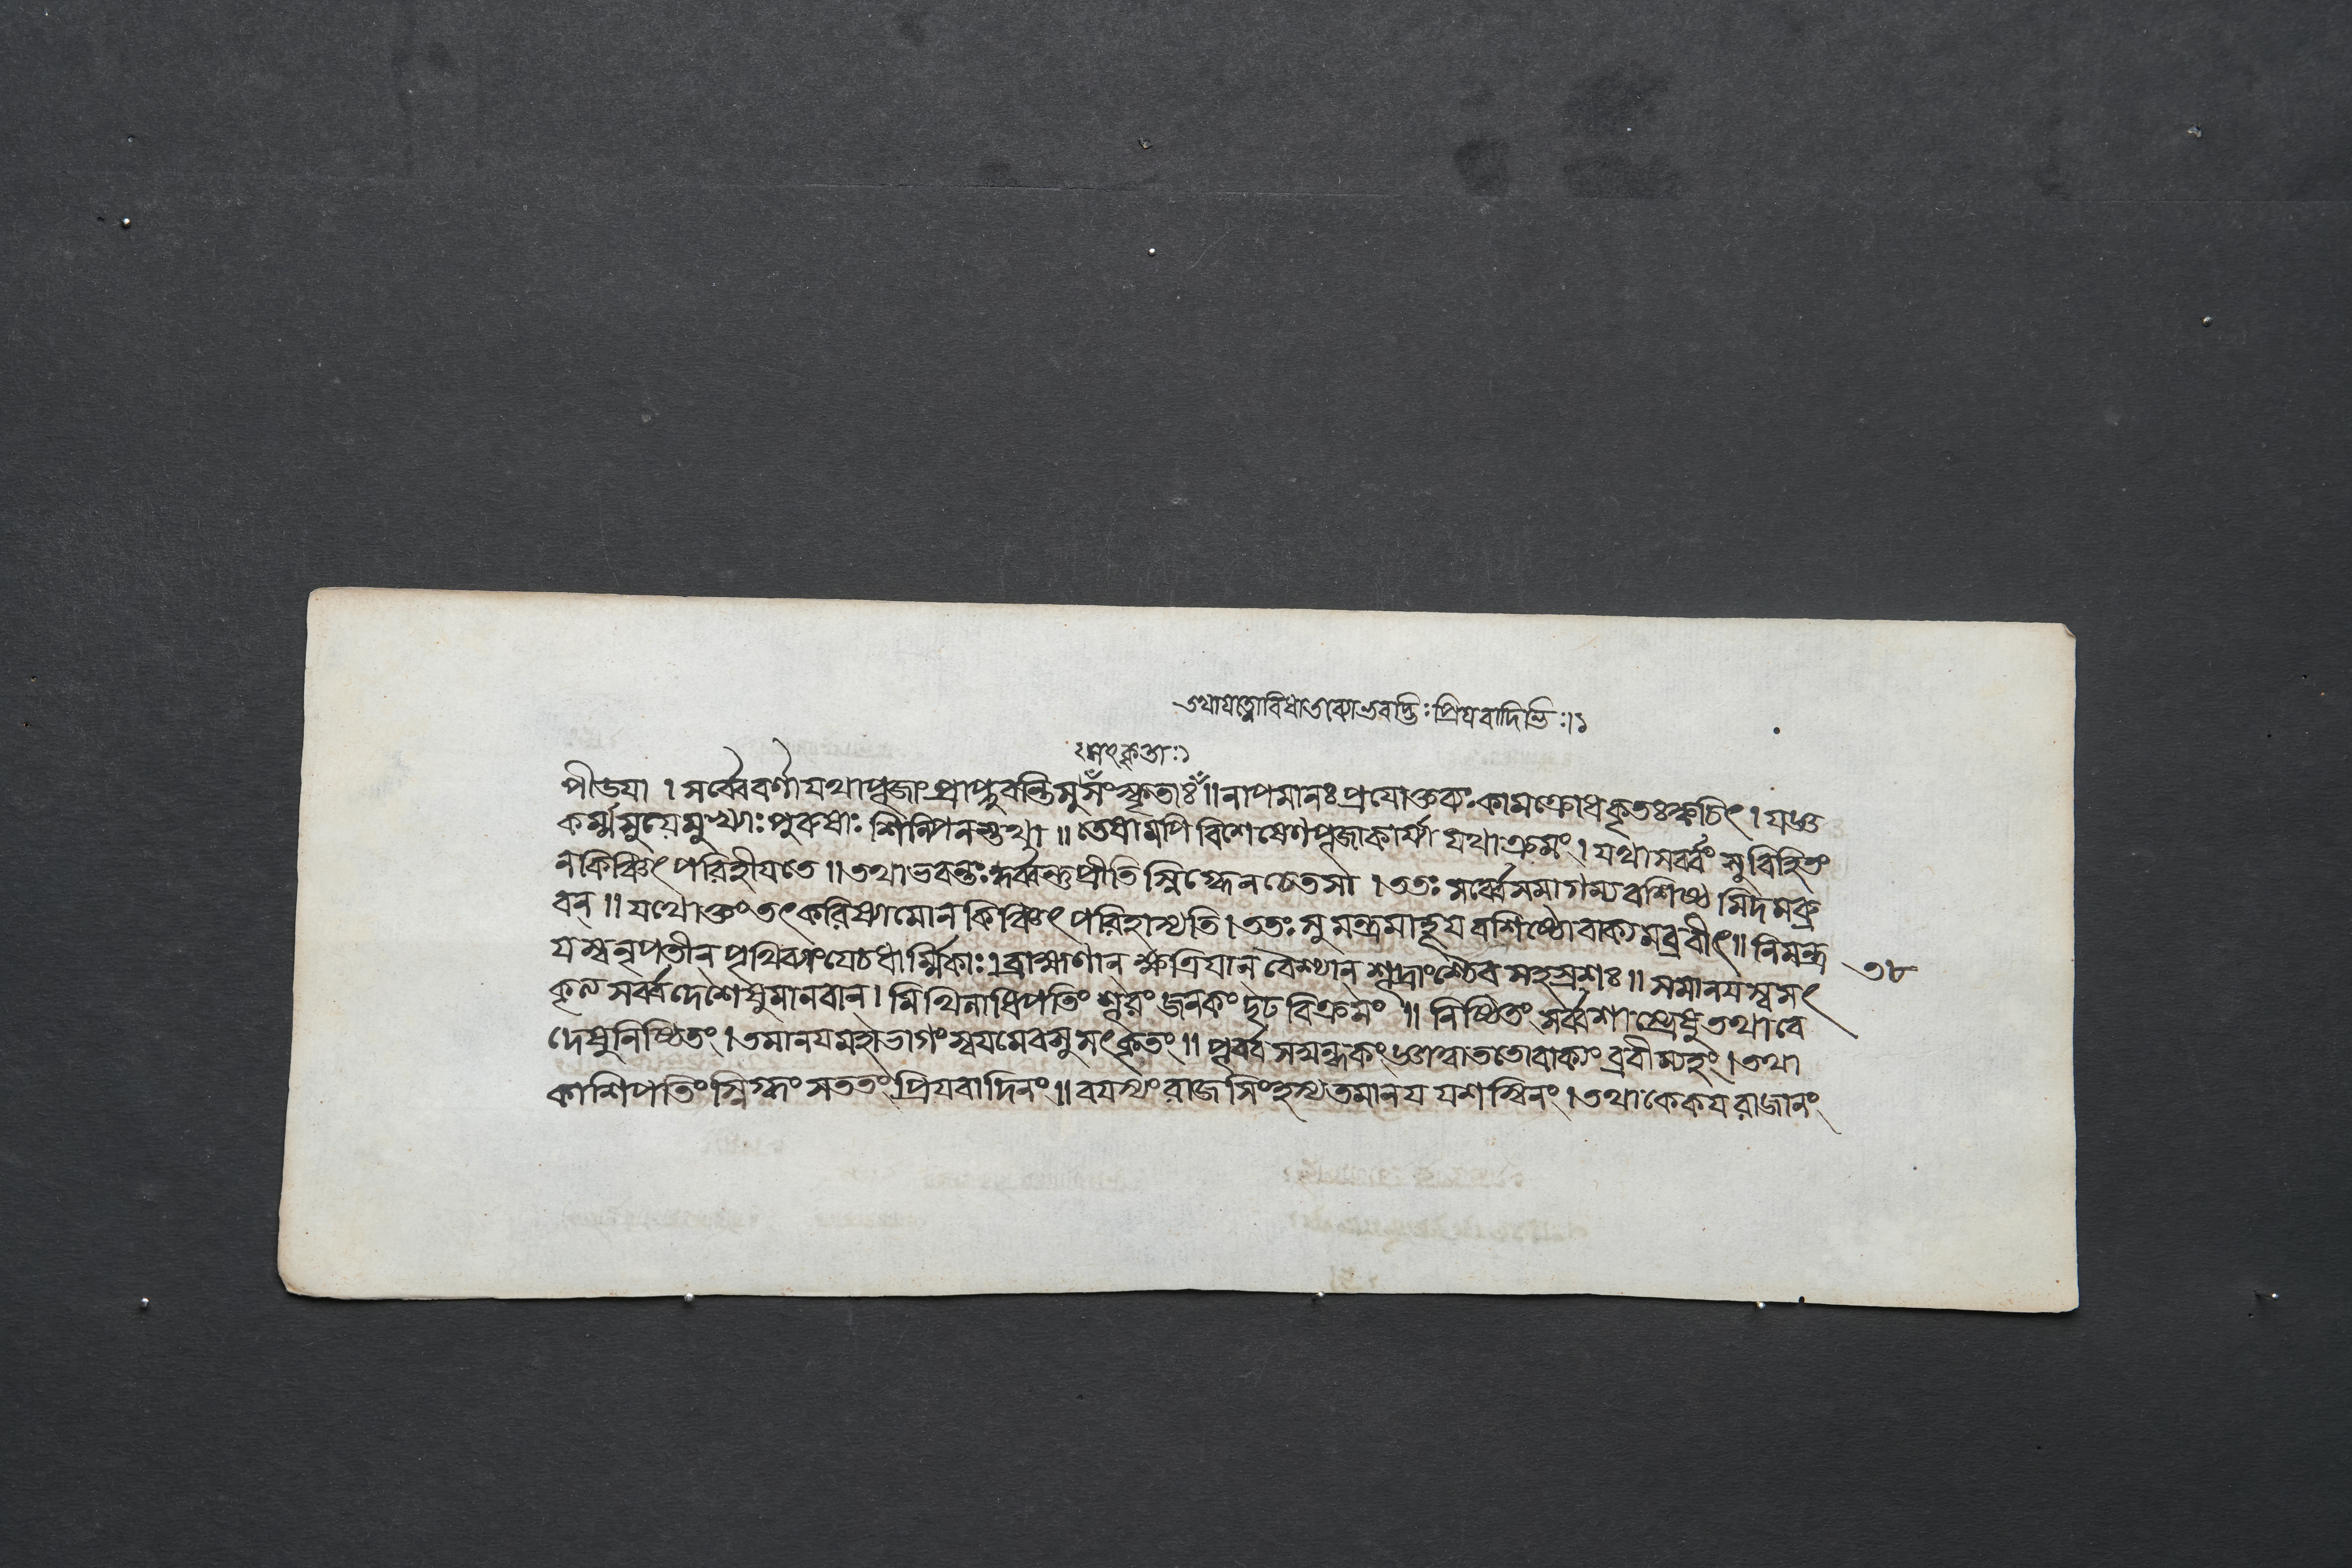 তথাযত্নোবিধাতব্যোভবদ্ভিঃপ্রিযবাদিভিঃ।১
ঃসৎকৃতাঃ১
পীডযা । সর্ব্বেবর্ণাযথাপূজাং প্রাপ্নুবন্তিসুসংস্কৃতাঃ॥ নাপমানঃ প্রযোক্তব্যঃ কামক্রোধকৃতঃক্বচিৎ । যজ্ঞ
কর্ম্মসুযেমুখ্যাঃ পুরুষাঃ শিল্পিনস্তথা ॥ তেষামপি বিশেষেণপূজাকার্য্যা যথাক্রমং । যথাসর্ব্বং সুবিহিতং
নকিঞ্চিৎ পরিহীযতে ॥ তথাভবন্তঃকুর্ব্বন্তুপ্রীতিস্নিগ্ধেনচেতসা । ততঃ সর্ব্বেসমাগম্যবশিষ্ঠমিদমব্রু
বন্ ॥ যথোক্তংতৎকরিষ্যামোনকিঞ্চিৎ পরিহাস্যতি । ততঃ সুমন্ত্রমাহূযবশিষ্ঠোবাক্যমব্রবীৎ॥ নিমন্ত্র
যস্বনৃপতীন্ পৃথিব্যাংযেচধার্ম্মিকাঃ। ব্রাহ্মণান্ ক্ষত্রিযান্ বৈশ্যান্ শূদ্রাংশ্চৈব সহস্রশঃ॥ সমানযস্বসৎ
৩৮
কৃত্যসর্ব্বদেশেষুমানবান্ । মিথিলাধিপতিং শূরং জনকং দৃঢবিক্রমং ॥ নিষ্ঠিতং সর্ব্বশাস্ত্রেষুতথাবে
দেষুনিষ্ঠিতং । তমানযমহাভাগংস্বযমেবসুসৎকৃতং ॥ পূর্ব্বসম্বন্ধকংজ্ঞাত্বাততোবাক্যং ব্রবীম্যহং । তথা
কাশিপতিংস্নিগ্ধং সততংপ্রিযবাদিনং ॥ বযস্যং রাজসিংহস্যতমানয যশস্বিনং । তথাকেকযরাজানং